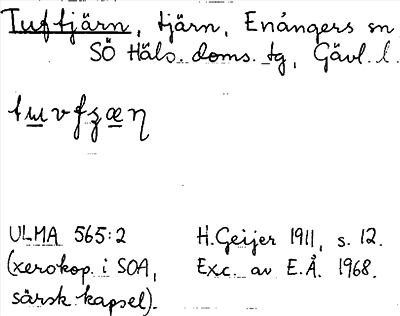 Tuftjärn, tjärn, Enångers sn
SÖ Häls. doms. tg, Gävl. l.
tɯvfʒæŋ
ULMA 565:2 H. Geijer 1911, s. 12.
(xerokop. i SOA, Exc. av E.Å. 1968.
särsk. kapsel).